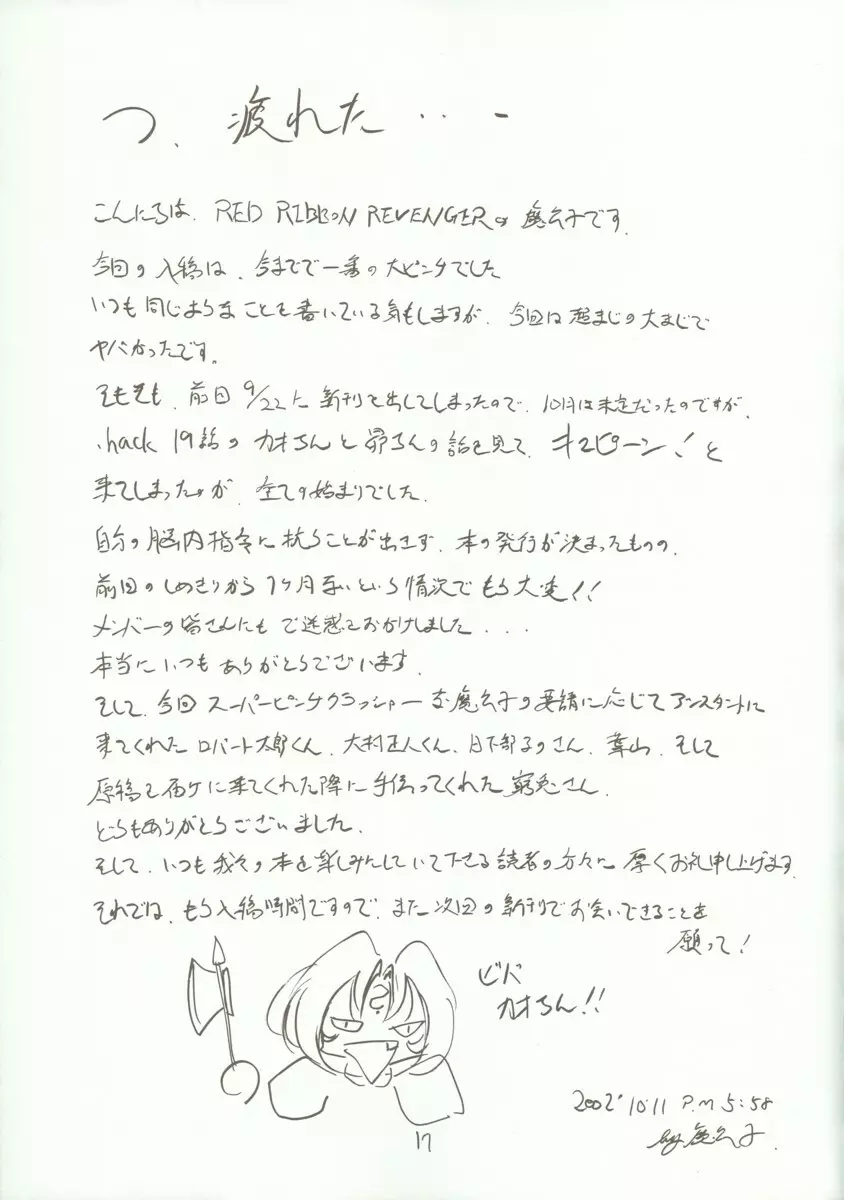 つ、疲れた・・・ー
こんにちは、RED RIBBON REVENGERの魔公子です。
今回の入稿は、今までで一番の大ピンチでした
いつも同じようなことを書いている気もしますが、今回は超まじの大まじで
ヤバかったです。
そもそも、前回9/22に新刊を出してしまったので、10月は未定だったのですが、
.hack 19話のカオちんと昴ちんの話を見て、キュピーン!と
来てしまったのが、全ての始まりでした。
自分の脳内指令に抗うことが出きず、本の発行が決まったものの、
前回のしめきりから1ヶ月無いという情況でもう大変!!
メンバーの皆さんにもご迷惑をおかけしました...
本当にいつもありがとうございます。
そして、今回スーパーピンチクラッシャーな魔公子の要請に応じてアシスタントに
来てくれたロバート太郎くん、大村正人くん、日下部さん、葉山、そして
原稿を届けに来てくれた際に手伝ってくれた窮兎さん。
どうもありがとうございました。
そして、いつも我々の本を楽しみにしていて下さる読者の方々に厚くお礼申し上げます。
それでは、もう入稿時間ですので、また次回の新刊でお会いできることを
願って!
ビバ
カオちん!!
2002' 10.11 P.M 5:58
by 魔公子
17